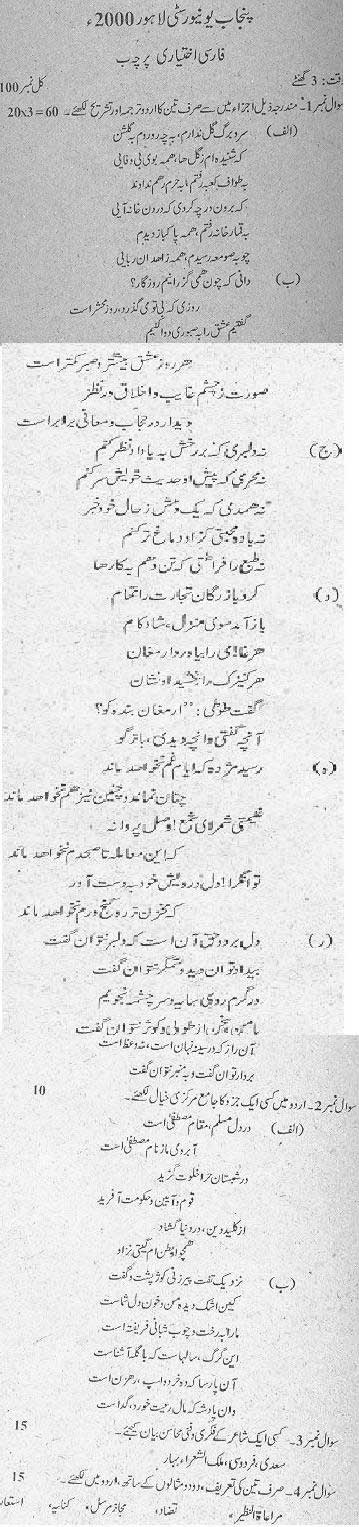 پنجاب یونیورسٹی لاہور 2000ء
فارسی اختیاری پرچہ ب
وقت: 3 گھنٹے کل نمبر 100
سوال نمبر 1۔ مندرجہ ذیل اجزاء میں سے صرف تین کا اردو ترجمہ اور تشریح لکھئے۔ 20x3=60
(الف) سر و برگ گل ندارم، بہ چہ روم بہ گلشن
کہ شنیدہ ام ز گل ھا، ھمہ بوی بی وفایی
بہ طواف کعبہ رفتم، بہ حرم رھم ندادند
کہ برون در چہ کردی کہ درون خانہ آیی
بہ قمار خانہ رفتم، ھمہ پاکباز دیدم
چو بہ صومعہ رسیدم، ھمہ زاھد ان ریایی
(ب) دانی کہ چون ھمی گزرانیم روزگار؟
روزی کہ بی تو می گذرد، روز محشر است
گفتیم عشق را بہ صبوری دوا کنیم
ھر روز عشق بیشتر و صبر کمتر است
صورت ز چشم غایب و اخلاق در نظر
دیدار در حجاب و معانی برابر است
(ج) نہ دلبری کہ بر رخش بہ یاد او نظر کنم
نہ محرمی کہ پیش او حدیث خویش سر کنم
نہ ھمدمی کہ یک دمش ز حال خود خبر
نہ بادہ محبتی کز او دماغ تر کنم
نہ طبع را فراغتی کہ تن دھم بہ کارھا
(د) کرد بازرگان تجارت را تمام
باز آمد سوی منزل، شاد کام
ھر غلامی را بیاورد ارمغان
ھر کنیزک را بخشید او نشان
گفت طوطی: "ارمغان بندہ کو؟
آنچہ گفتی و آنچہ دیدی، بازگو
(ہ) رسید مژدہ کہ ایام غم نخواھد ماند
چنان نماند و چنین نیز ھم نخواھد ماند
غنیمتی شمر ای شمع! وصل پروانہ
کہ این معاملہ تا صبحدم نخواھد ماند
توانگرا! دل درویش خود بہ دست آور
کہ مخزن زر و گنج و درم نخواھد ماند
(ر) دل برد و حق آن است کہ دلبر نتوان گفت
بیداد توان دید و ستمگر نتوان گفت
در گرم روی سایہ و سرچشمہ نجویم
با ما سخن از طوبی و کوثر نتوان گفت
آن راز کہ در سینہ نہان است، نہ وعظ است
بردار توان گفت و بہ منبر نتوان گفت
سوال نمبر 2۔ اردو میں کسی ایک جزو کا جامع مرکزی خیال لکھئے۔ 10
(الف) در دل مسلم، مقام مصطفیٰ است
آبروی ما ز نام مصطفیٰ است
در شبستان حرا خلوت گزید
قوم و آیین و حکومت آفرید
از کلید دین، در دنیا گشاد
ھمچو او بطن ام گیتی نزاد
(ب) نزدیک رفت پیرزنی کوژ پشت و گفت
کین اشک دیدہ من و خون دل شماست
ما را بہ رخت و چوب شبانی فریفتہ است
این گرگ، سالہاست کہ با گلہ آشناست
آن پارسا کہ دہ خرد و اسپ، رھزن است
وان پادشہ کہ مال رعیت خورد، گداست
سوال نمبر 3۔ کسی ایک شاعر کے فکری و فنی محاسن بیان کیجئے۔ 15
سعدی، فردوسی، ملک الشعراء بہار
سوال نمبر 4۔ صرف تین کی تعریف، دو دو مثالوں کے ساتھ، اردو میں لکھئے۔ 15
مراعاة النظیر، تضاد، مجاز مرسل، کنایہ، استعار